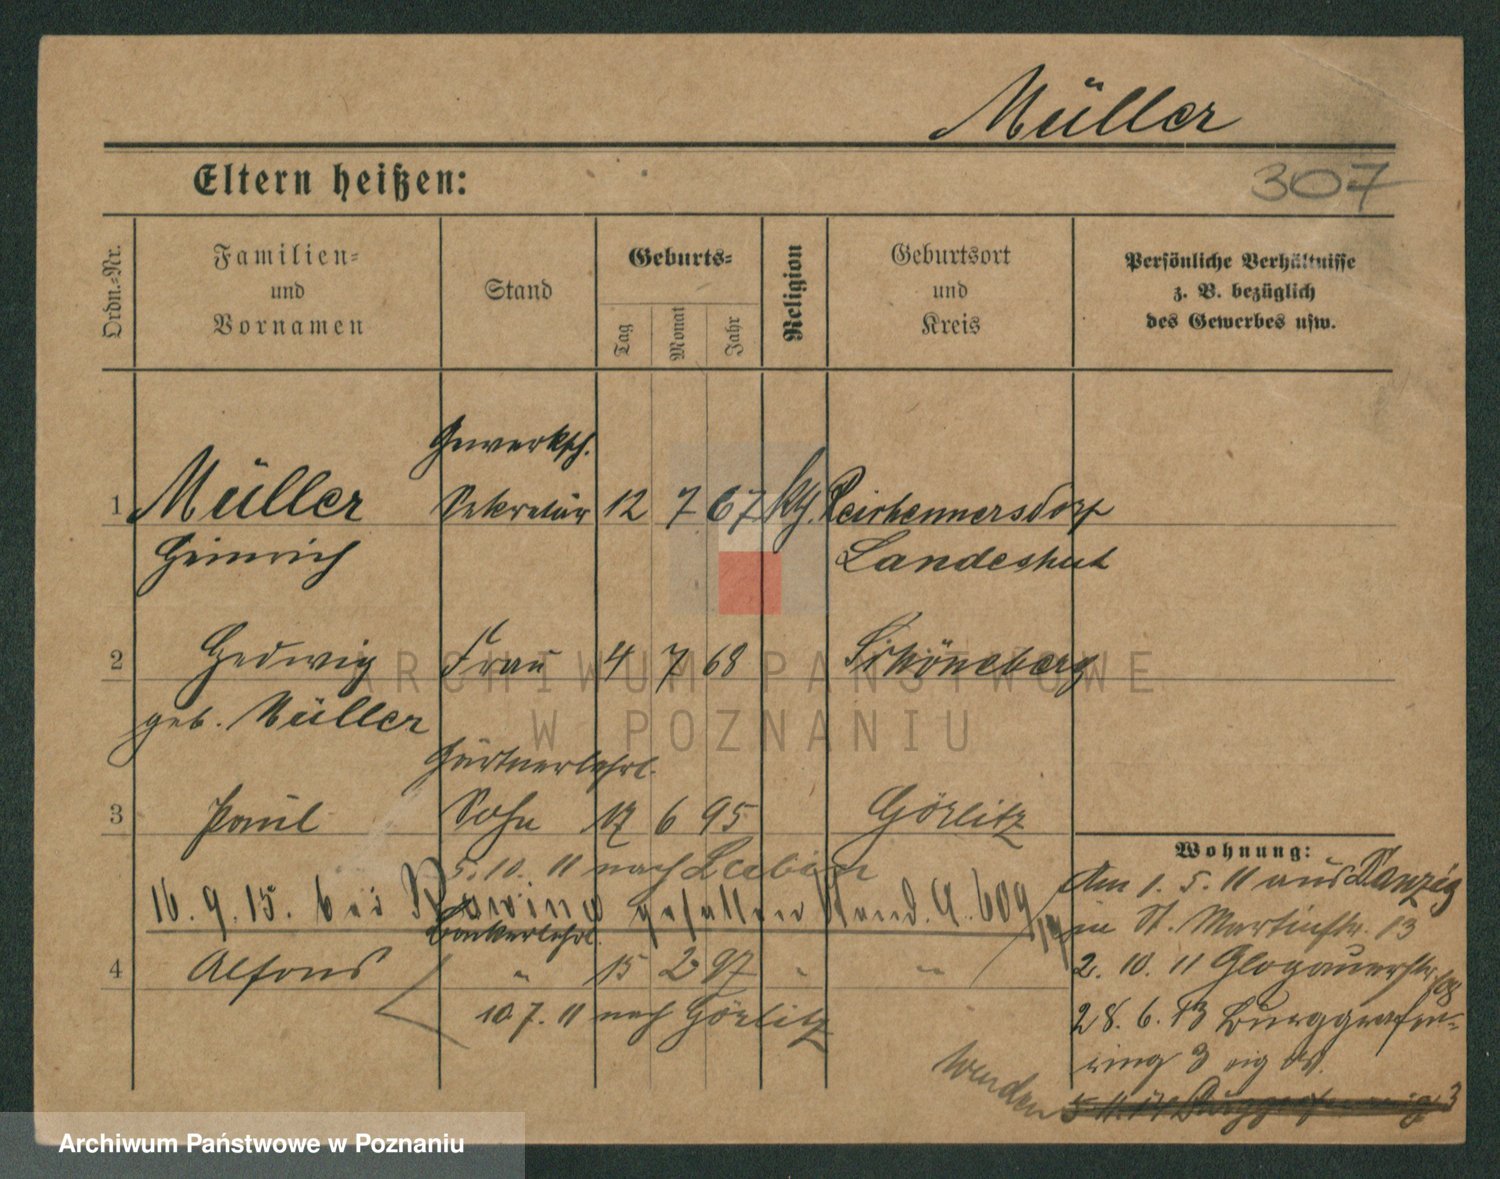 Müller
307
Eltern heißen:
Ordn.-Nr.
Familien-
und
Vornamen
Stand
Geburts-
Tag
Monat
Jahr
Religion
Geburtsort
und
Kreis
Persönliche Verhältnisse
z. B. bezüglich
des Gewerbes usw.
Gewerksch.
1 Müller Sekretär 12 7 67 kth.
Heinrich Landeshut
2 Hedwig Frau 4 7 68 Schöneberg
geb. Müller
Gärtnerlehrl.
3 Paul Sohn 17 6 95 Görlitz
5. 10. 11 nach
16. 9. 15. bei gefallen Stand. A. 609/
Bäckerlehrl.
4 Alfons " 15 2 97 " "
10. 7. 11 nach Görlitz
Wohnung:
Am 1. 5. 11 aus Danzig
in St. Martinstr. 13
2. 10. 11 Glogauerstr. 108
28. 6. 13 Burggrafen-
ring 3
wenden
ARCHIWUM PAŃSTWOWE
W POZNANIU
Archiwum Państwowe w Poznaniu